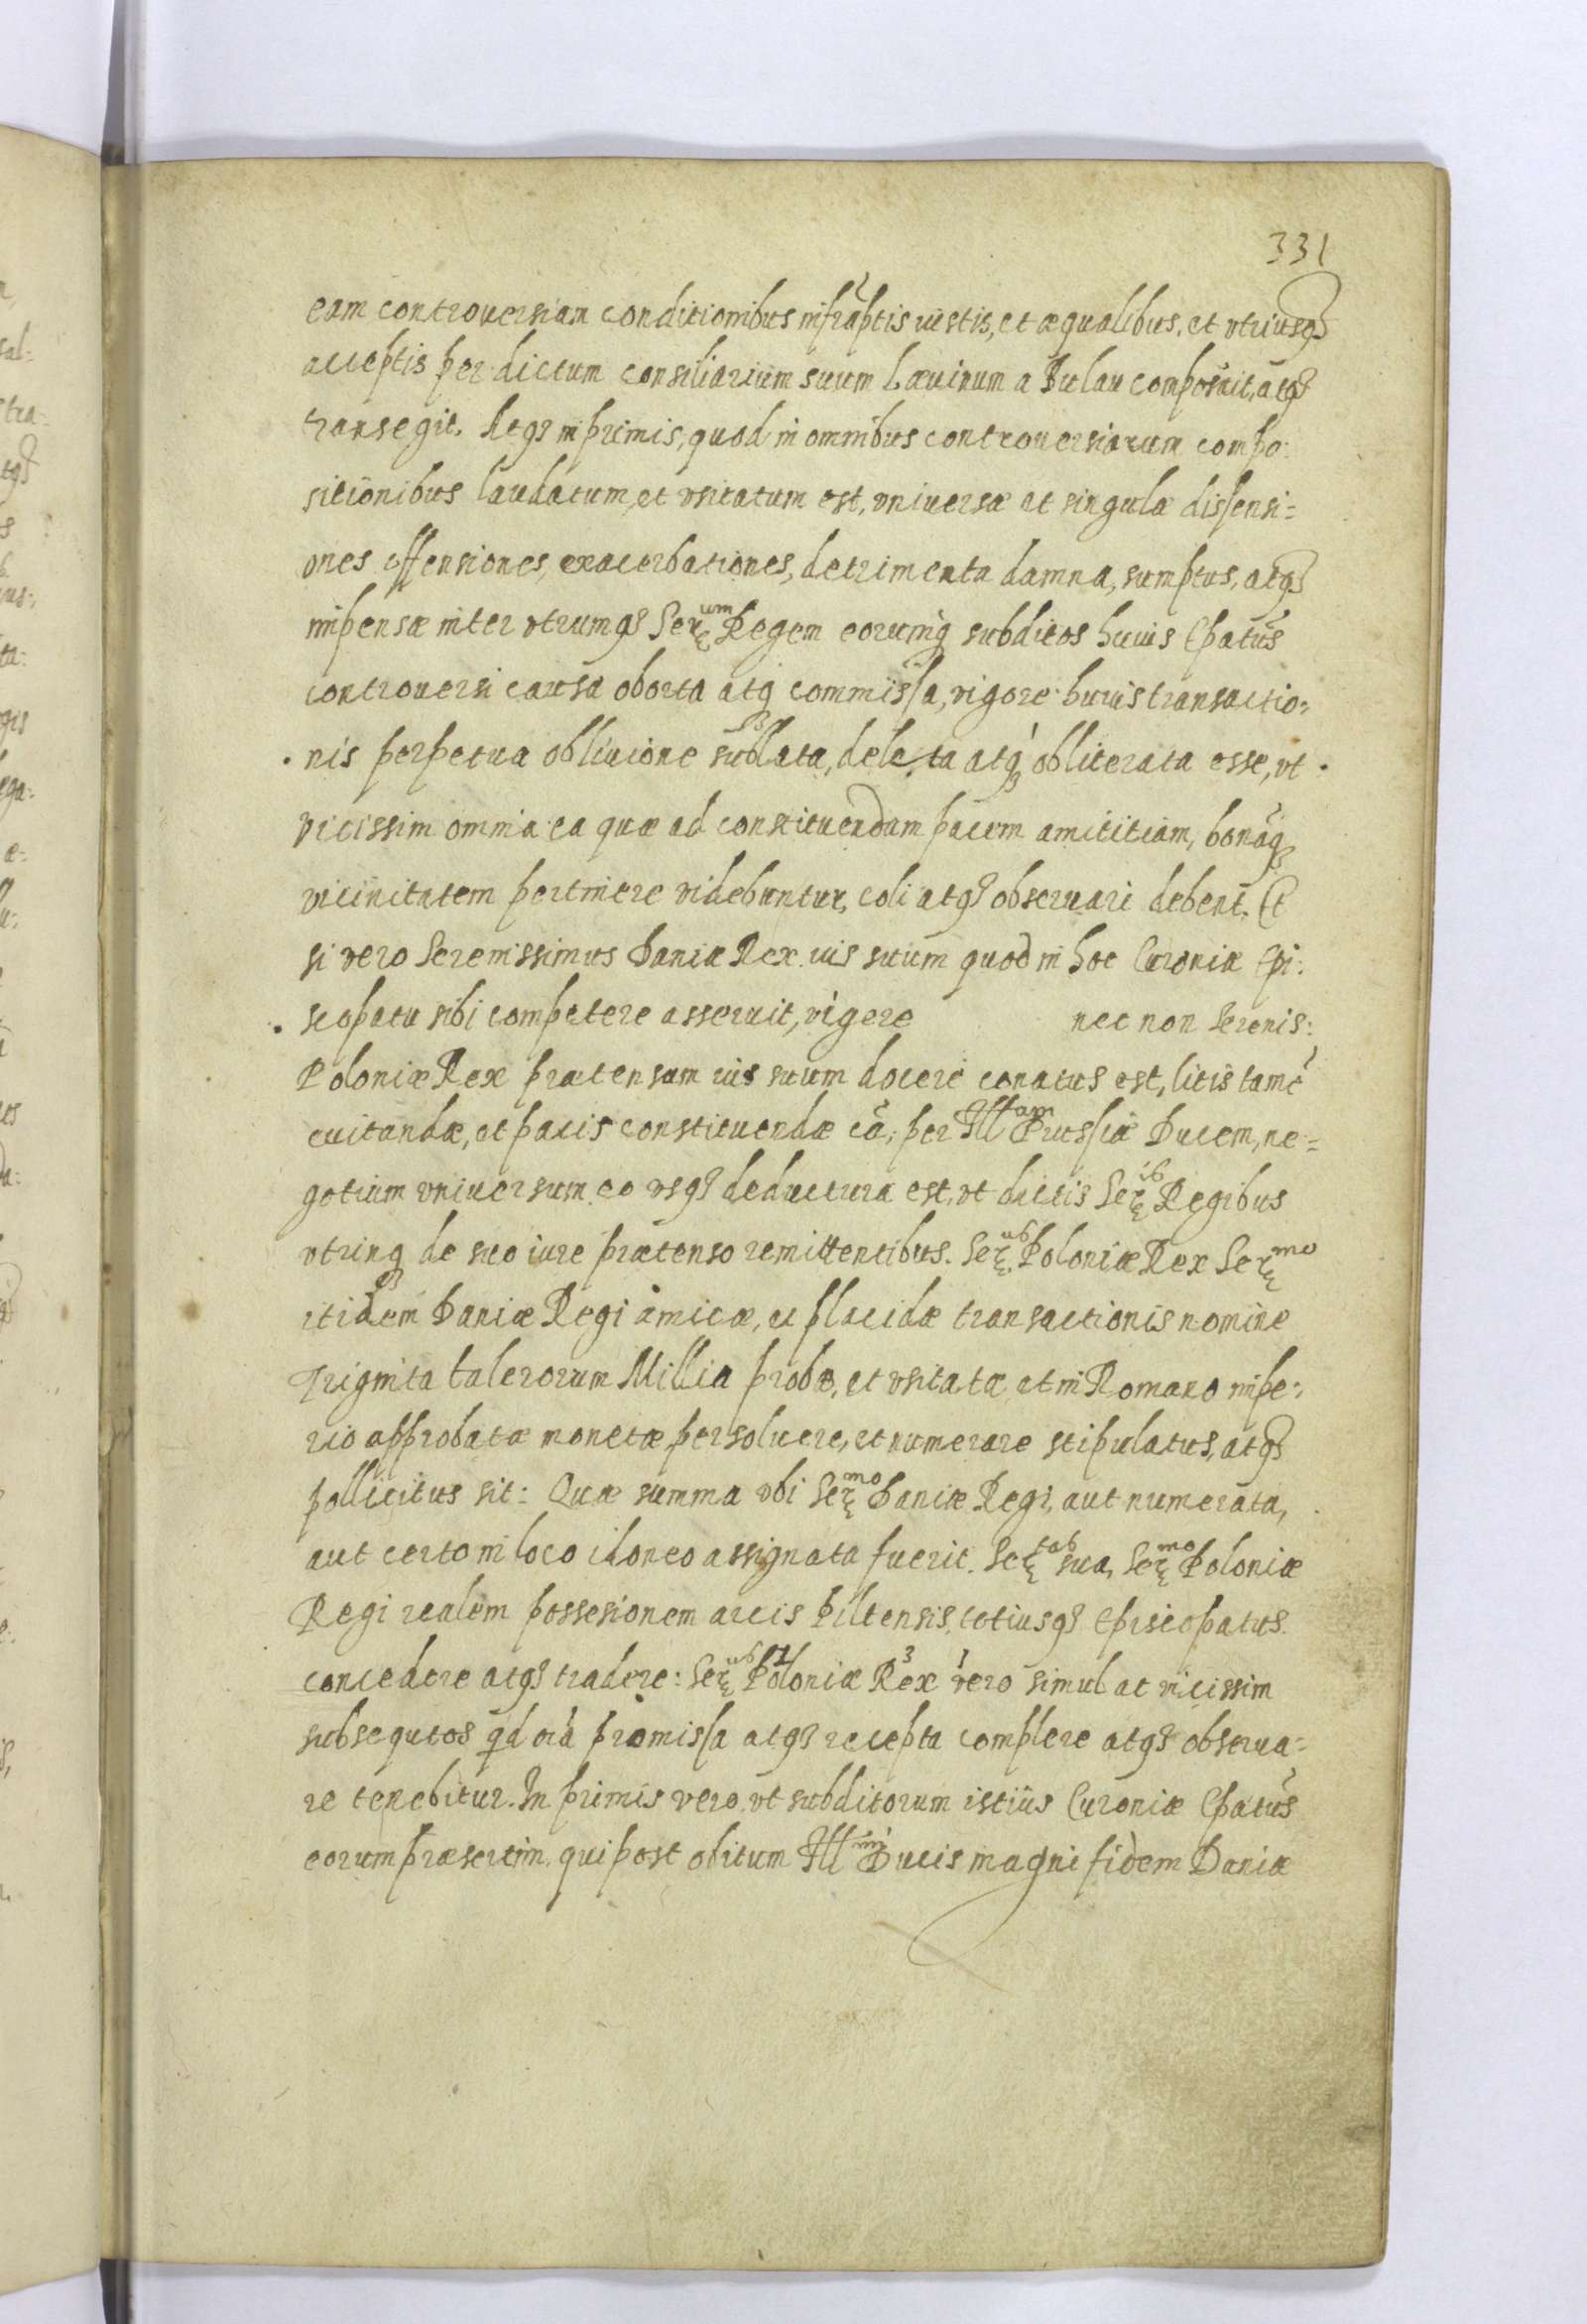 331
eam controuersiam conditionibus infraptis iustis, et æqualibus, et vtriusqȝ
acceptis per dictum consiliarium suum Læuinum a Bulau composuit, atqȝ
transegit. Atqȝ in primis, quod in omnibus controuersiarum compo:
sitionibus laudatum, et vsitatum est, vniuersæ et singulæ dissensi=
ones offensiones, exacerbationes, detrimenta damna, sumptus, atqȝ
impensæ inter vtrumqȝ Serᵘᵐ Regem eorumq́ subditos huius Epatus
controuersi causa oborta atq́ commissa, vigore huius transactio=
nis perpetua obliuione sublata, deleta atq́ȝ obliterata esse, vt
vicissim omnia ea quæ ad constituendam pacem amicitiam, bonāq́ȝ
vicinitatem pertinere videbuntur, coli atqȝ obseruari debent. Et
si vero Serenissimus Daniæ Rex ius suum quod in hoc Curoniæ Epi:
scopatu sibi competere asseruit, vigere nec non Serenis:
Poloniæ Rex prætensam ius suum docere conatus est, litis tamē
euitandæ, et pacis constituendæ cā, per Illᵃᵐ Prussiæ Ducem, ne=
gotium vniuersum eo vsqȝ deductura est, vt dictis Serⁱᵇ Regibus
vtrinq́ȝ de suo iure prætenso remittentibus. Serᵘˢ Poloniæ Rex Serᵐᵒ
itidem Daniæ Regi amicæ, ac placidæ transactionis nomine
Triginta talerorum Millia probæ, et vsitatæ et in Romano impe:
rio approbatæ monetæ, persoluere, et numerare stipulatus, atqȝ
pollicitus sit: Quæ summa vbi Serᵐᵒ Daniæ Regi, aut numerata,
aut certo in loco idoneo assignata fuerit. Serᵗᵃˢ sua, Serᵐᵒ Poloniæ
Regi realem possesionem arcis Piltensis, totiusqȝ episcopatus
concedere atqȝ tradere: Serᵘˢ Poloniæ Rex vero simul at vicissim
subsequtos qd oīa promissa atqȝ recepta complere atqȝ obserua=
re tenebitur. In primis vero, vt subditorum istius Curoniæ Epatus
eorum præsertim, qui post obitum Illᵐⁱ Ducis magni fidem Daniæ